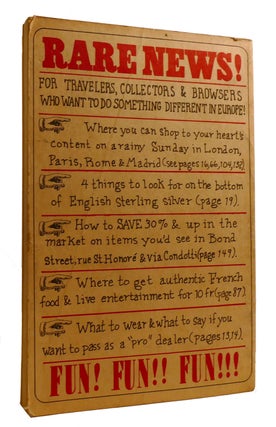 RARE NEWS!
FOR TRAVELERS, COLLECTORS & BROWSERS
WHO WANT TO DO SOMETHING DIFFERENT IN EUROPE!
Where you can shop to your heart's
content on a rainy Sunday in London,
Paris, Rome & Madrid (see pages 16, 66, 104, 132).
4 things to look for on the bottom
of English Sterling silver (page 19).
How to SAVE 30% & up in the
market on items you'd see in Bond
Street, rue St. Honoré & Via Condotti (page 149).
Where to get authentic French
food & live entertainment for 10 fr (page 87).
What to wear & what to say if you
want to pass as a "pro" dealer (pages 13, 14).
FUN! FUN!! FUN!!!